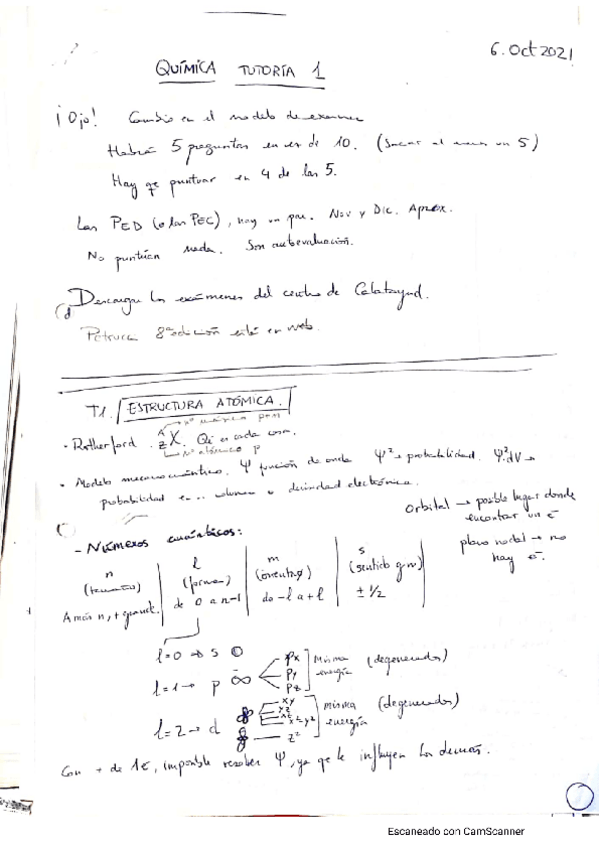 6. Oct 2021
QUÍMICA TUTORÍA 1
¡Ojo! Cambio en el modelo de examen
Habrá 5 preguntas en vez de 10. (Sacar al menos un 5)
Hay que puntuar en 4 de las 5.
Las PED (o las PEC), hay un par. Nov y Dic. Aprox.
No puntúan nada. Son autoevaluación.
Descargar los exámenes del centro de Calatayud.
Petrucci 8ª edición está en web.
T1. ESTRUCTURA ATÓMICA.
A → nº másico p+n
· Rutherford. X. Qué es cada cosa.
Z → Nº atómico p
· Modelo mecanocuántico. Ψ función de onda Ψ² → probabilidad. Ψ²·dV →
probabilidad en .. volumen o densidad electrónica.
Orbital → posible lugar donde
encontrar un e⁻
plano nodal → no
hay e⁻.
- Números cuánticos:
n | l | m | s
(tamaño) | (forma) | (orientac) | (sentido giro)
A más n, + grande. | de 0 a n-1 | de -l a +l | ± 1/2
l=0 → s
l=1 → p px py pz misma energía (degenerados)
l=2 → d xy yz xz x²-y² z² misma energía (degenerados)
Con + de 1e⁻, imposible resolver Ψ, ya que le influyen los demás.
1
Escaneado con CamScanner